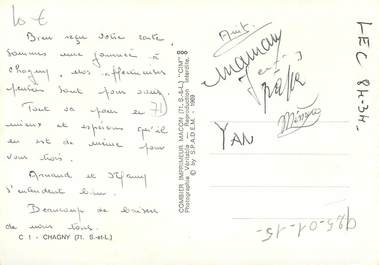 10 €
Bien reçu votre carte
sommes une journée à
Chagny, nos affectueuses
pensées sont pour vous.
Tout va pour le 71)
mieux et espérons qu'il
en est de même pour
vous trois.
Arnaud et
s'entendent bien.
Beaucoup de baisers
de nous tous.
C 1 - CHAGNY (71. S.-et-L.)
COMBIER IMPRIMEUR MACON (71. S.-&-L.) "CIM"
Photographie Véritable - Reproduction Interdite.
© by S.P.A.D.E.M. - 1969
maman
YAN
LEC 84-34-
925-01-15-